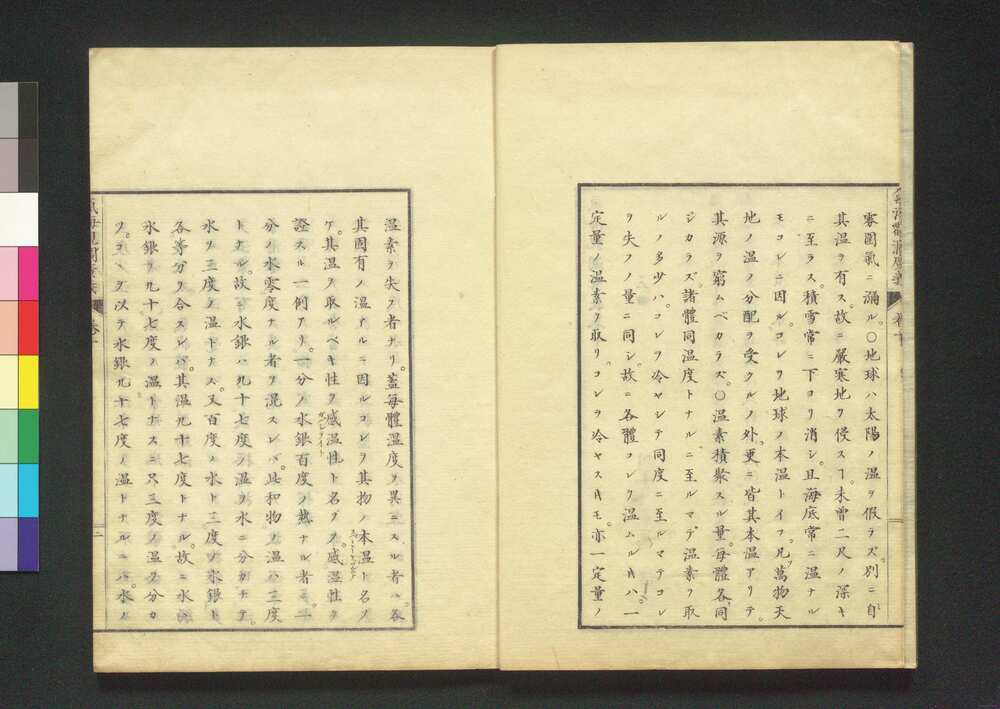 雰圍氣ニ漏ル。〇地球ハ太陽ノ温ヲ假ラズ。別ニ自
其温ヲ有ス。故ニ嚴寒地ヲ侵スヿ未曾二尺ノ深キ
ニ至ラス。積雪常ニ下ヨリ消シ。且海底常ニ温ナル
モコレニ因ル。コレヲ地球ノ本温トイフ。凡萬物天
地ノ温ノ分配ヲ受クルノ外。更ニ皆其本温アリテ。
其源ヲ窮ムベカラズ。〇温素積聚スル量。每體各同
ジカラズ。諸體同温度トナルニ至ルマデ温素ヲ取
ルノ多少ハ。コレヲ冷ヤシテ同度ニ至ルマテコレ
ヲ失フノ量ニ同シ。故ニ各體コレヲ温ムル𪜈ハ一
定量ノ温素ヲ取リ。コレヲ冷ヤス𪜈モ。亦一定量ノ
温素ヲ失フ者ナリ。蓋每體温度ヲ異ニスル者ハ。各
其固有ノ温アルニ因ルコレヲ其物ノ本温ト名ツ
ケ。其温ヲ取ルベキ性ヲ感温性ト名ツク。感温性ヲ
證スル一例アリ。一分ノ水銀百度ノ熱ナル者ニ。一
分ノ水零度ナル者ヲ混スレバ。此和物ノ温ハ三度
トナル。故ニ水銀ハ九十七度ノ温ヲ水ニ分カチテ。
水ヲ三度ノ温トナス。又百度ノ水ト三度ノ水銀ト
各等分ヲ合スレバ。其温九十七度トナル。故ニ水ハ
水銀ヲ九十七度ノ温トナスニ只三度ノ温ヲ分カ
ツ。コヽヲ以テ水銀九十七度ノ温トナルニハ。水ノ